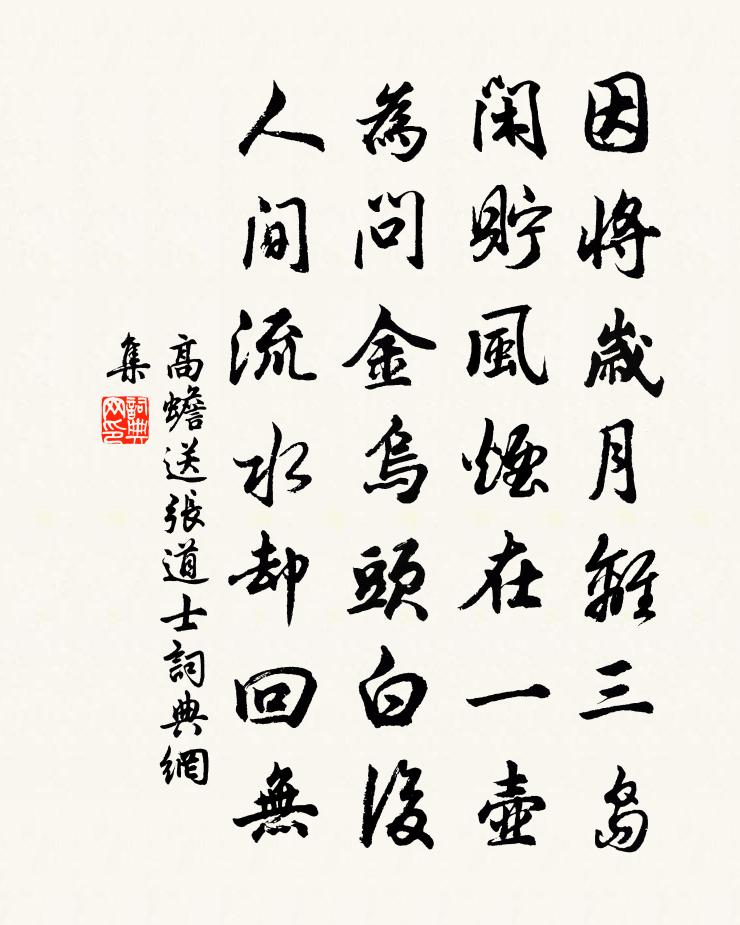 因將歲月離三島
閑貯風煙在一壺
為問金烏頭白後
人間流水却回無
高蟾送張道士詞典網
集
詞典
网印